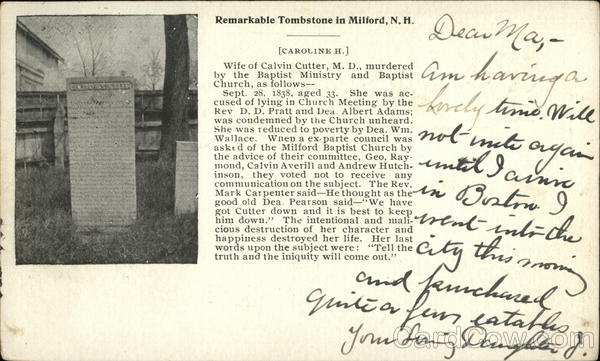 Remarkable Tombstone in Milford, N. H.
[CAROLINE H.]
Wife of Calvin Cutter, M. D., murdered
by the Baptist Ministry and Baptist
Church, as follows—
Sept. 28, 1838, aged 33. She was ac-
cused of lying in Church Meeting by the
Rev D. D. Pratt and Dea. Albert Adams;
was condemned by the Church unheard.
She was reduced to poverty by Dea. Wm.
Wallace. When a ex-parte council was
asked of the Milford Baptist Church by
the advice of their committee, Geo. Ray-
mond, Calvin Averill and Andrew Hutch-
inson, they voted not to receive any
communication on the subject. The Rev.
Mark Carpenter said—He thought as the
good old Dea. Pearson said—"We have
got Cutter down and it is best to keep
him down." The intentional and mali-
cious destruction of her character and
happiness destroyed her life. Her last
words upon the subject were: "Tell the
truth and the iniquity will come out."
Dear Ma,—
Am having a
lovely time. Will
not write again
until I arrive
in Boston. I
went into the
city this morning
and purchased
quite a few eatables
Your loving Daughter J.
CardCow.com